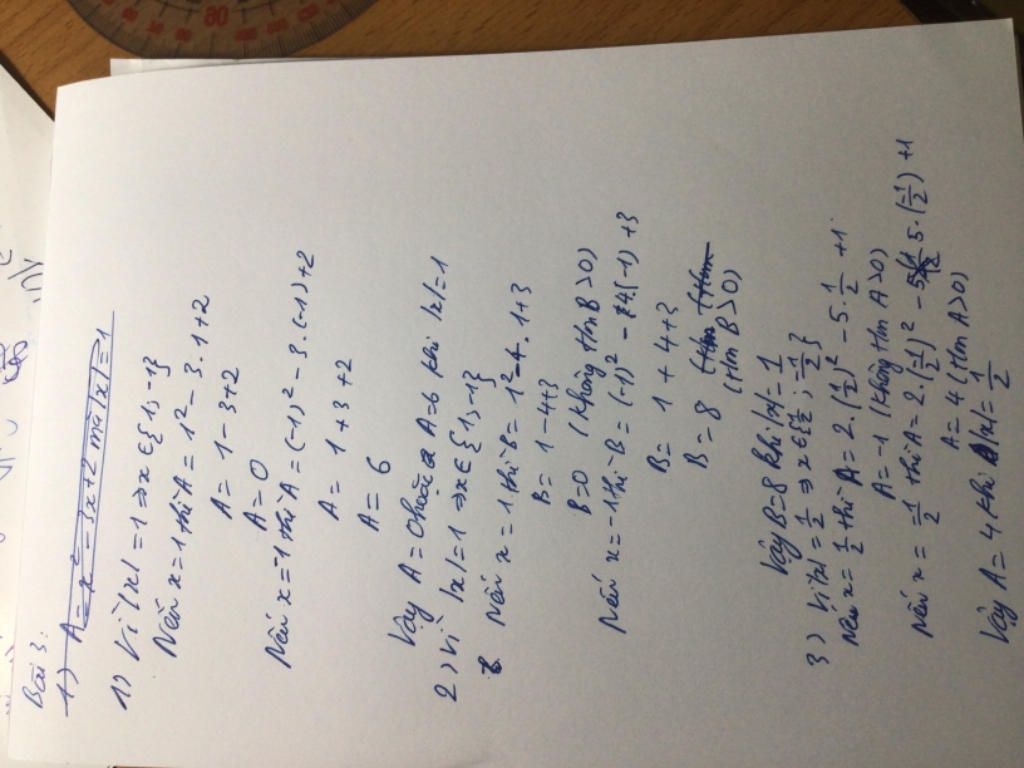 Bài 3:
1) A = x² - 3x + 2 mà |x| = 1
1) Vì |x| = 1 => x ∈ {1; -1}
Nếu x = 1 thì A = 1² - 3 . 1 + 2
A = 1 - 3 + 2
A = 0
Nếu x = -1 thì A = (-1)² - 3 . (-1) + 2
A = 1 + 3 + 2
A = 6
Vậy A = 0 hoặc A = 6 khi |x| = 1
2) Vì |x| = 1 => x ∈ {1; -1}
Nếu x = 1 thì B = 1² - 4 . 1 + 3
B = 1 - 4 + 3
B = 0 (không t/m B > 0)
Nếu x = -1 thì B = (-1)² - 4 . (-1) + 3
B = 1 + 4 + 3
B = 8 (t/m
(t/m B > 0)
Vậy B = 8 khi |x| = 1
3) Vì |x| = 1/2 => x ∈ {1/2 ; -1/2}
Nếu x = 1/2 thì A = 2 . (1/2)² - 5 . 1/2 + 1
A = -1 (không t/m A > 0)
Nếu x = -1/2 thì A = 2 . (-1/2)² - 5 . (-1/2) + 1
A = 4 (t/m A > 0)
Vậy A = 4 khi |x| = 1/2